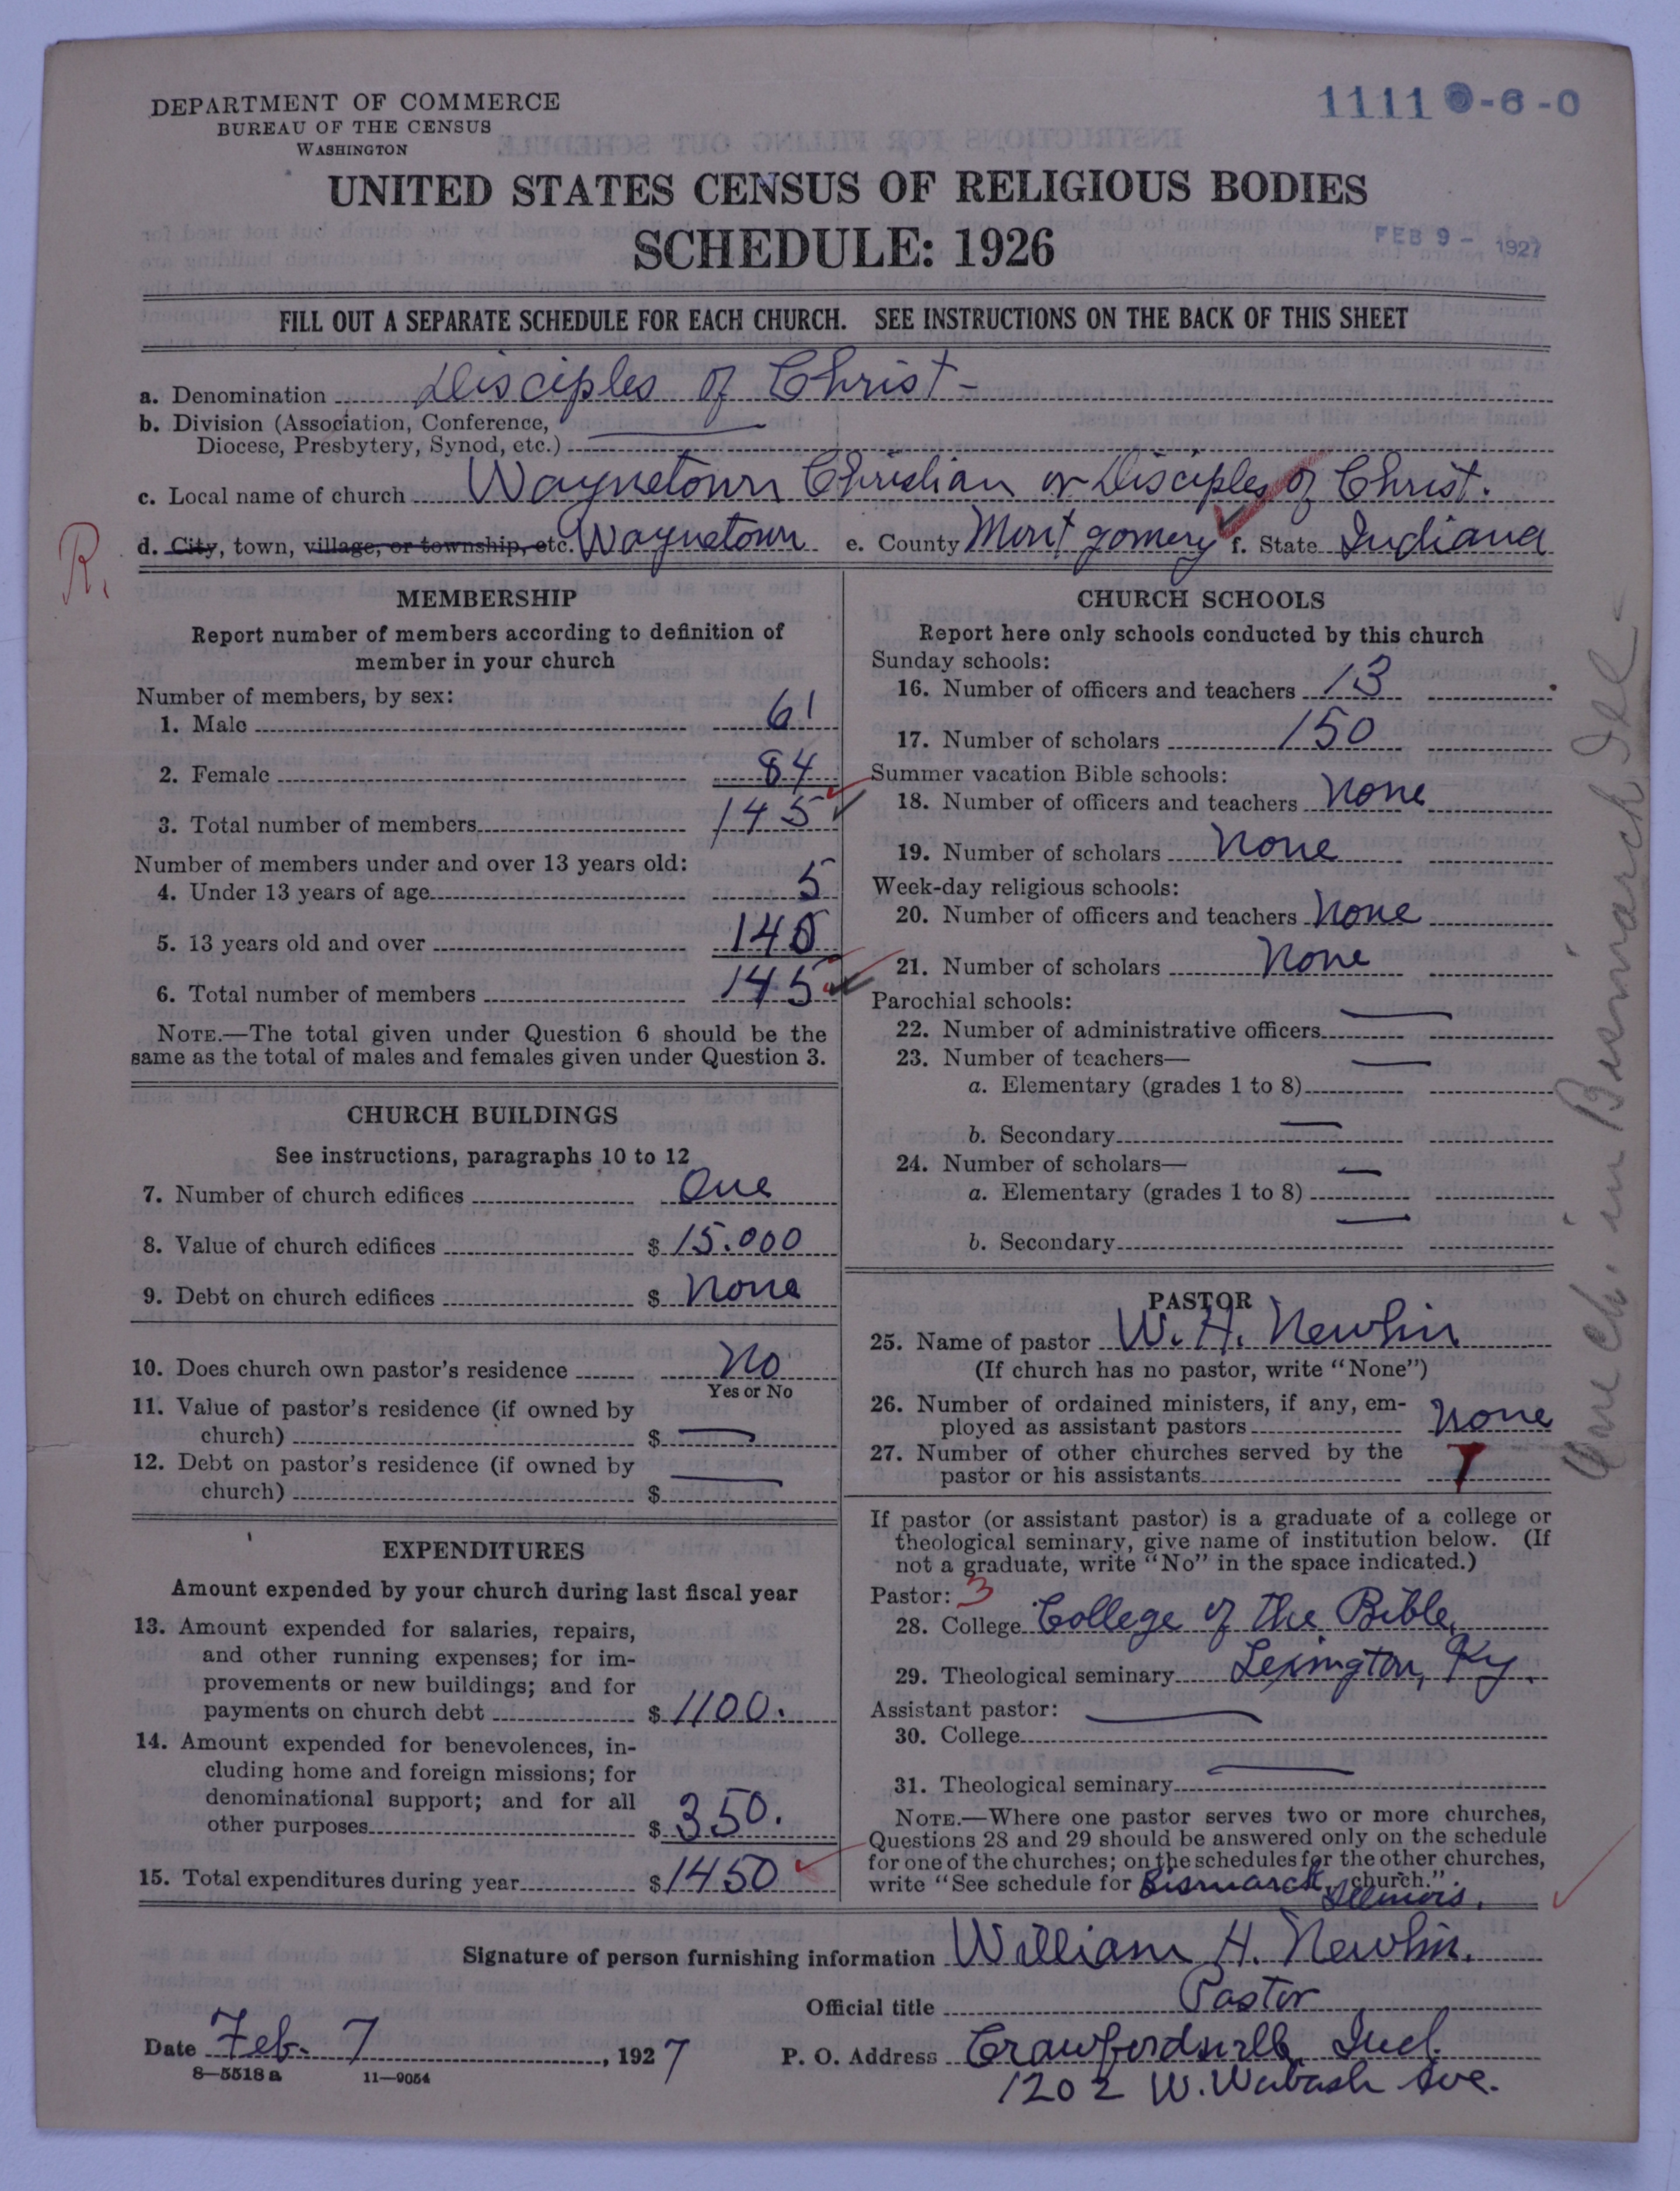 DEPARTMENT OF COMMERCE
BUREAU OF THE CENSUS
WASHINGTON
1111 -6-0
UNITED STATES CENSUS OF RELIGIOUS BODIES
SCHEDULE: 1926
FEB 9 - 1927
FILL OUT A SEPARATE SCHEDULE FOR EACH CHURCH. SEE INSTRUCTIONS ON THE BACK OF THIS SHEET
a. Denomination Disciples of Christ -
b. Division (Association, Conference,
Diocese, Presbytery, Synod, etc.)
c. Local name of church Waynetown Christian or Disciples of Christ.
R.
d. City, town, village, or township, etc. Waynetown e. County Montgomery f. State Indiana
MEMBERSHIP
Report number of members according to definition of
member in your church
Number of members, by sex:
1. Male 61
2. Female 84
3. Total number of members 145
Number of members under and over 13 years old:
4. Under 13 years of age 5
5. 13 years old and over 140
6. Total number of members 145
NOTE.—The total given under Question 6 should be the
same as the total of males and females given under Question 3.
CHURCH BUILDINGS
See instructions, paragraphs 10 to 12
7. Number of church edifices One
8. Value of church edifices $ 15.000
9. Debt on church edifices $ None
10. Does church own pastor's residence No
Yes or No
11. Value of pastor's residence (if owned by
church) $
12. Debt on pastor's residence (if owned by
church) $
EXPENDITURES
Amount expended by your church during last fiscal year
13. Amount expended for salaries, repairs,
and other running expenses; for im-
provements or new buildings; and for
payments on church debt $ 1100.
14. Amount expended for benevolences, in-
cluding home and foreign missions; for
denominational support; and for all
other purposes $ 350.
15. Total expenditures during year $ 1450
CHURCH SCHOOLS
Report here only schools conducted by this church
Sunday schools:
16. Number of officers and teachers 13
17. Number of scholars 150
Summer vacation Bible schools:
18. Number of officers and teachers None
19. Number of scholars None
Week-day religious schools:
20. Number of officers and teachers None
21. Number of scholars None
Parochial schools:
22. Number of administrative officers
23. Number of teachers—
a. Elementary (grades 1 to 8)
b. Secondary
24. Number of scholars—
a. Elementary (grades 1 to 8)
b. Secondary
PASTOR
25. Name of pastor W. H. Newlin
(If church has no pastor, write "None")
26. Number of ordained ministers, if any, em-
ployed as assistant pastors None
27. Number of other churches served by the
pastor or his assistants 1
If pastor (or assistant pastor) is a graduate of a college or
theological seminary, give name of institution below. (If
not a graduate, write "No" in the space indicated.)
Pastor: 3
28. College College of the Bible,
29. Theological seminary Lexington, Ky.
Assistant pastor:
30. College
31. Theological seminary
NOTE.—Where one pastor serves two or more churches,
Questions 28 and 29 should be answered only on the schedule
for one of the churches; on the schedules for the other churches,
write "See schedule for Bismarck, church."
Illinois.
One ch. in Bismarck Ill
Signature of person furnishing information William H. Newlin.
Official title Pastor
Date Feb. 7, 1927 P. O. Address Crawfordsville, Ind.
1202 W. Wabash Ave.
8—5518 a 11—9054